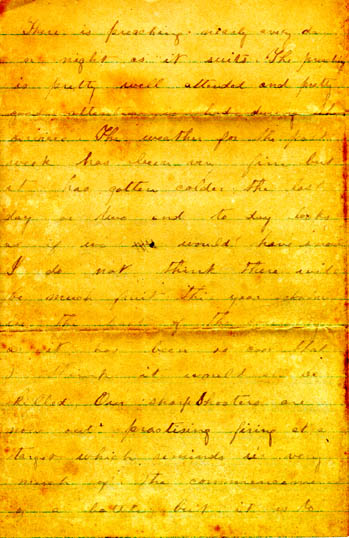 There is preaching nearly every da
or night as it suits The preaching
is pretty well attended and pretty
good attention is had during
service The weather for the past
week has been very fine but
it has gotten colder the last
day or two and to day looks
as if we would have snow
I do not think there will
be much fruit this year
in the of the
as it has been so cool that
I think it would be
killed Our sharpshooters are
now out practising firing at a
target which reminds us very
much of the commenceme
of a battle but it is to